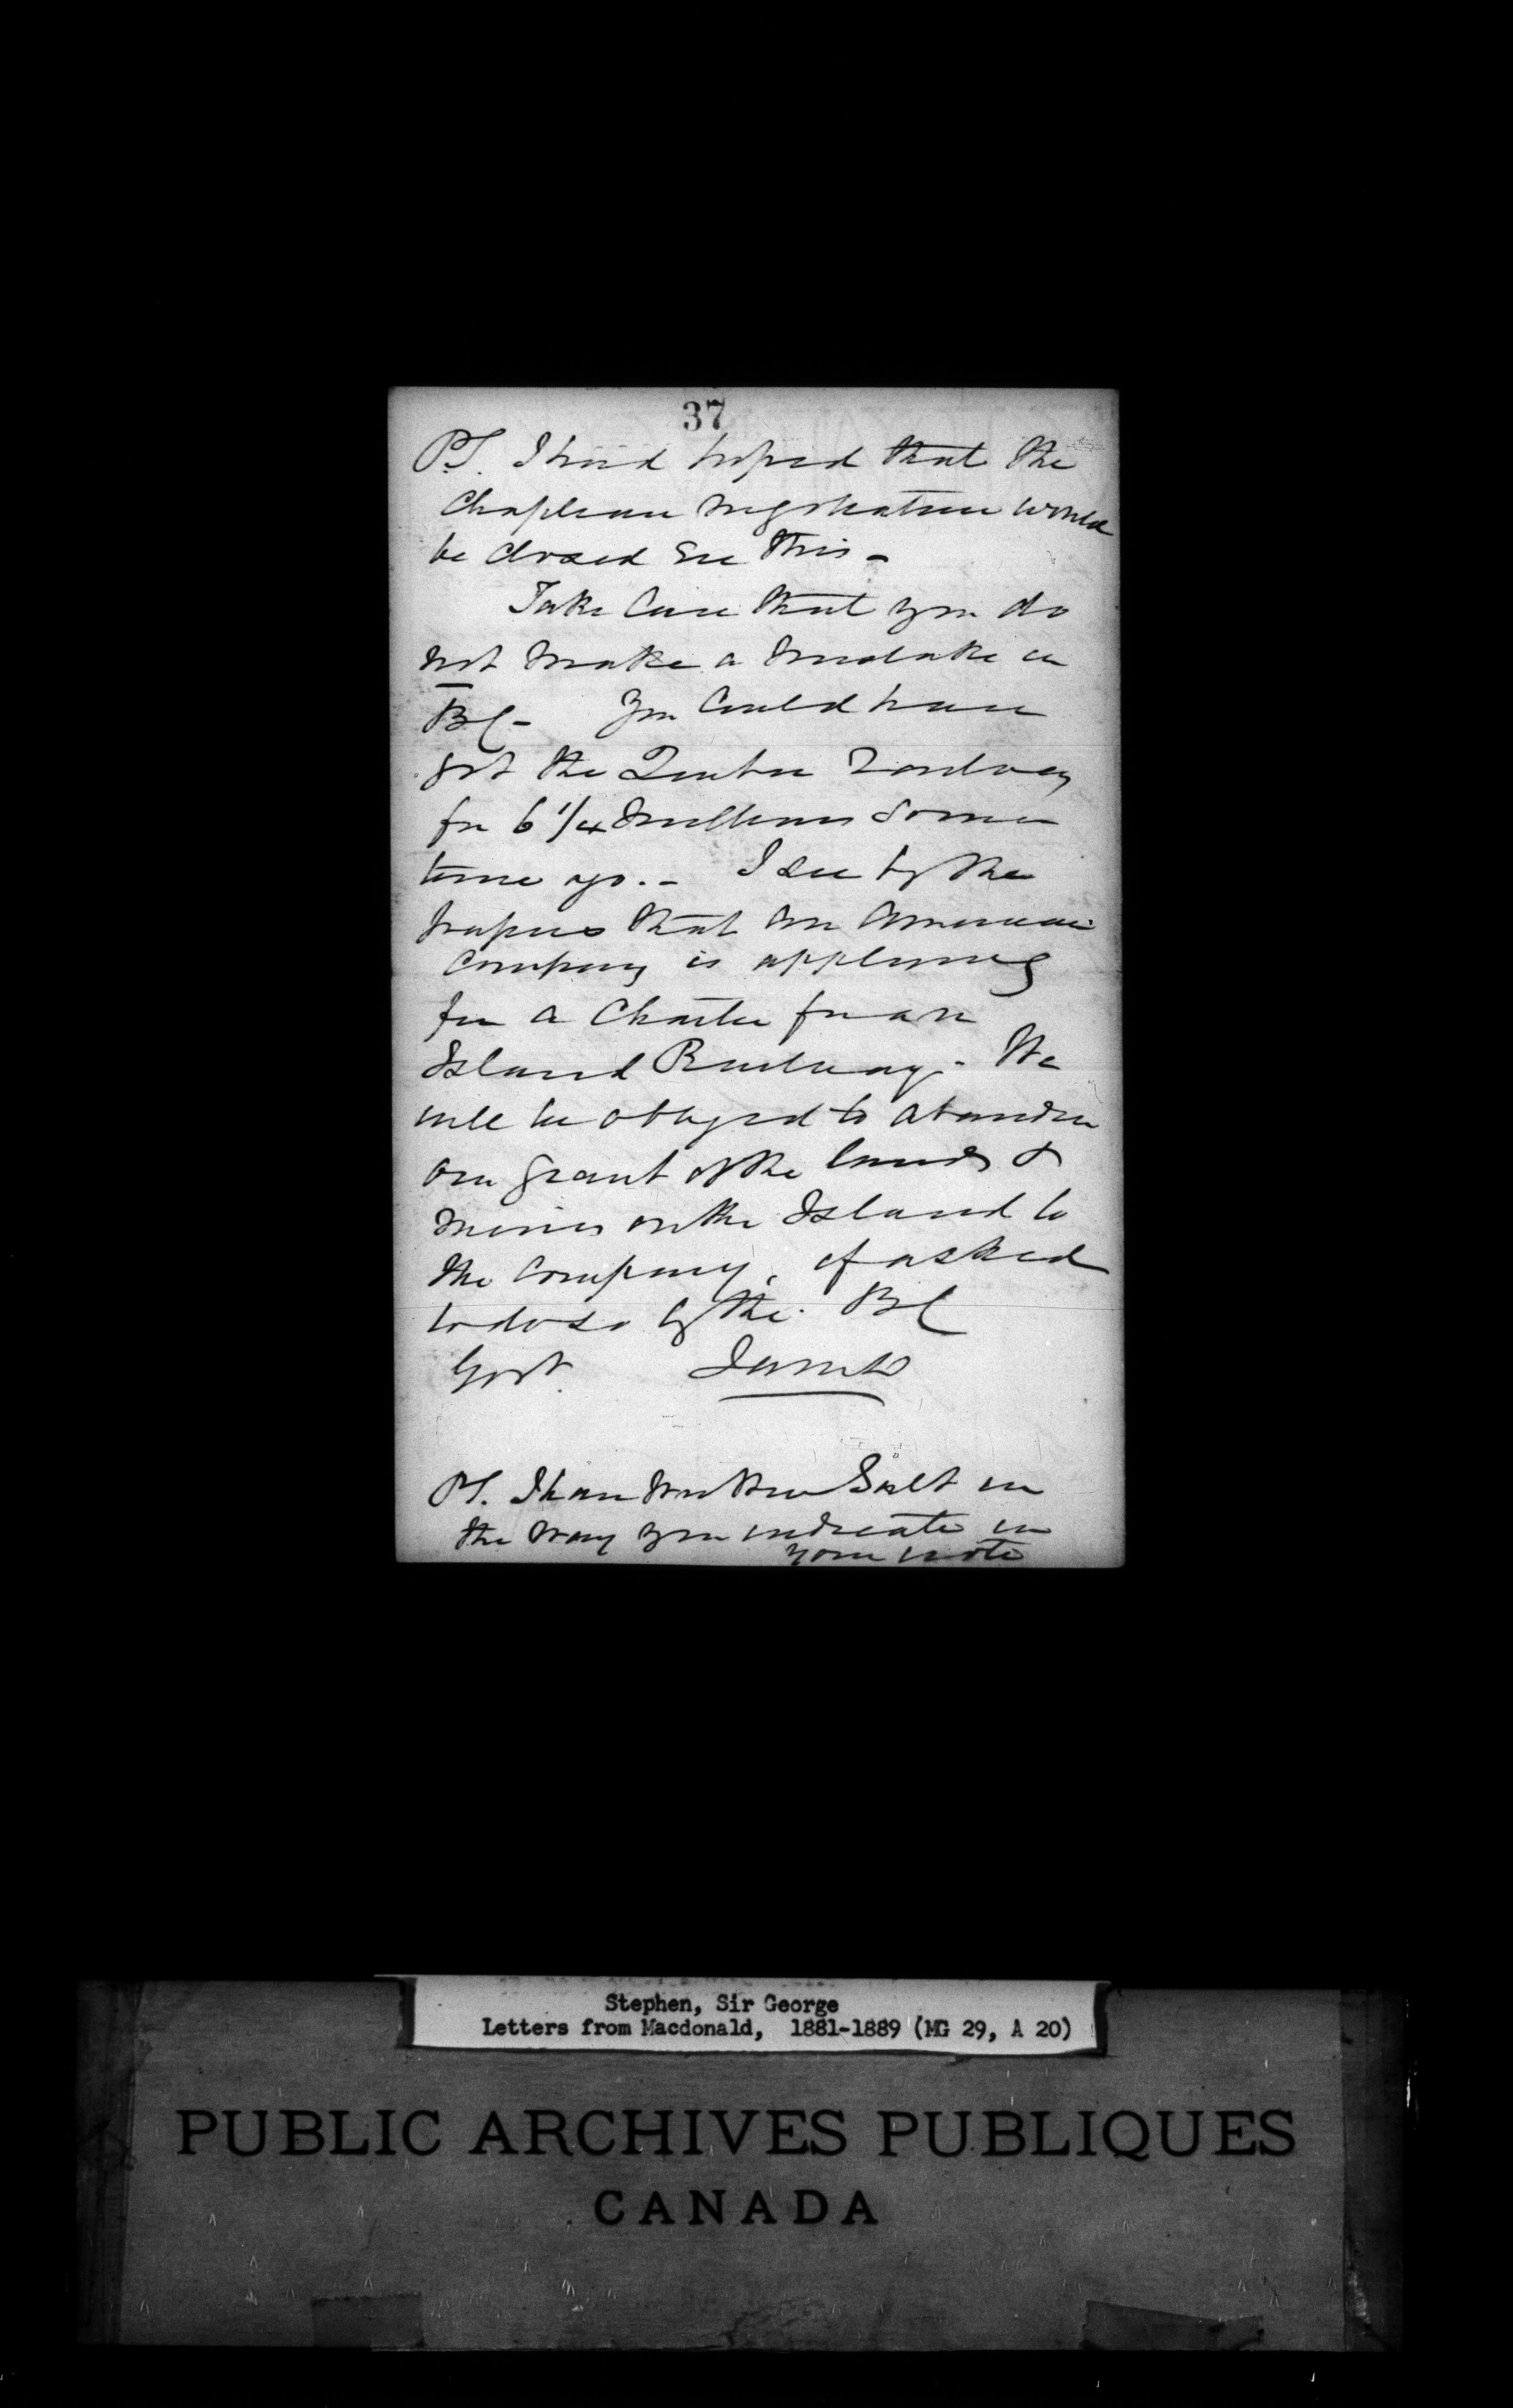 37
PS. I had hoped that the
Chapleau negotiation would
be closed ere this -
Take Care that you do
not make a mistake in
BC - You Could have
got the Quebec Railway
for 6 1/4 millions some
time ago. - I see by the
papers that an American
Company is applying
for a Charter for an
Island Railway. - We
will be obliged to abandon
our grant of the lands &
mines on the Island to
the Company, if asked
to do so by the BC
Govt. JAMcD
PS. I have written Galt in
the way you indicate in
your note
Stephen, Sir George
Letters from Macdonald, 1881-1889 (MG 29, A 20)
PUBLIC ARCHIVES PUBLIQUES
CANADA